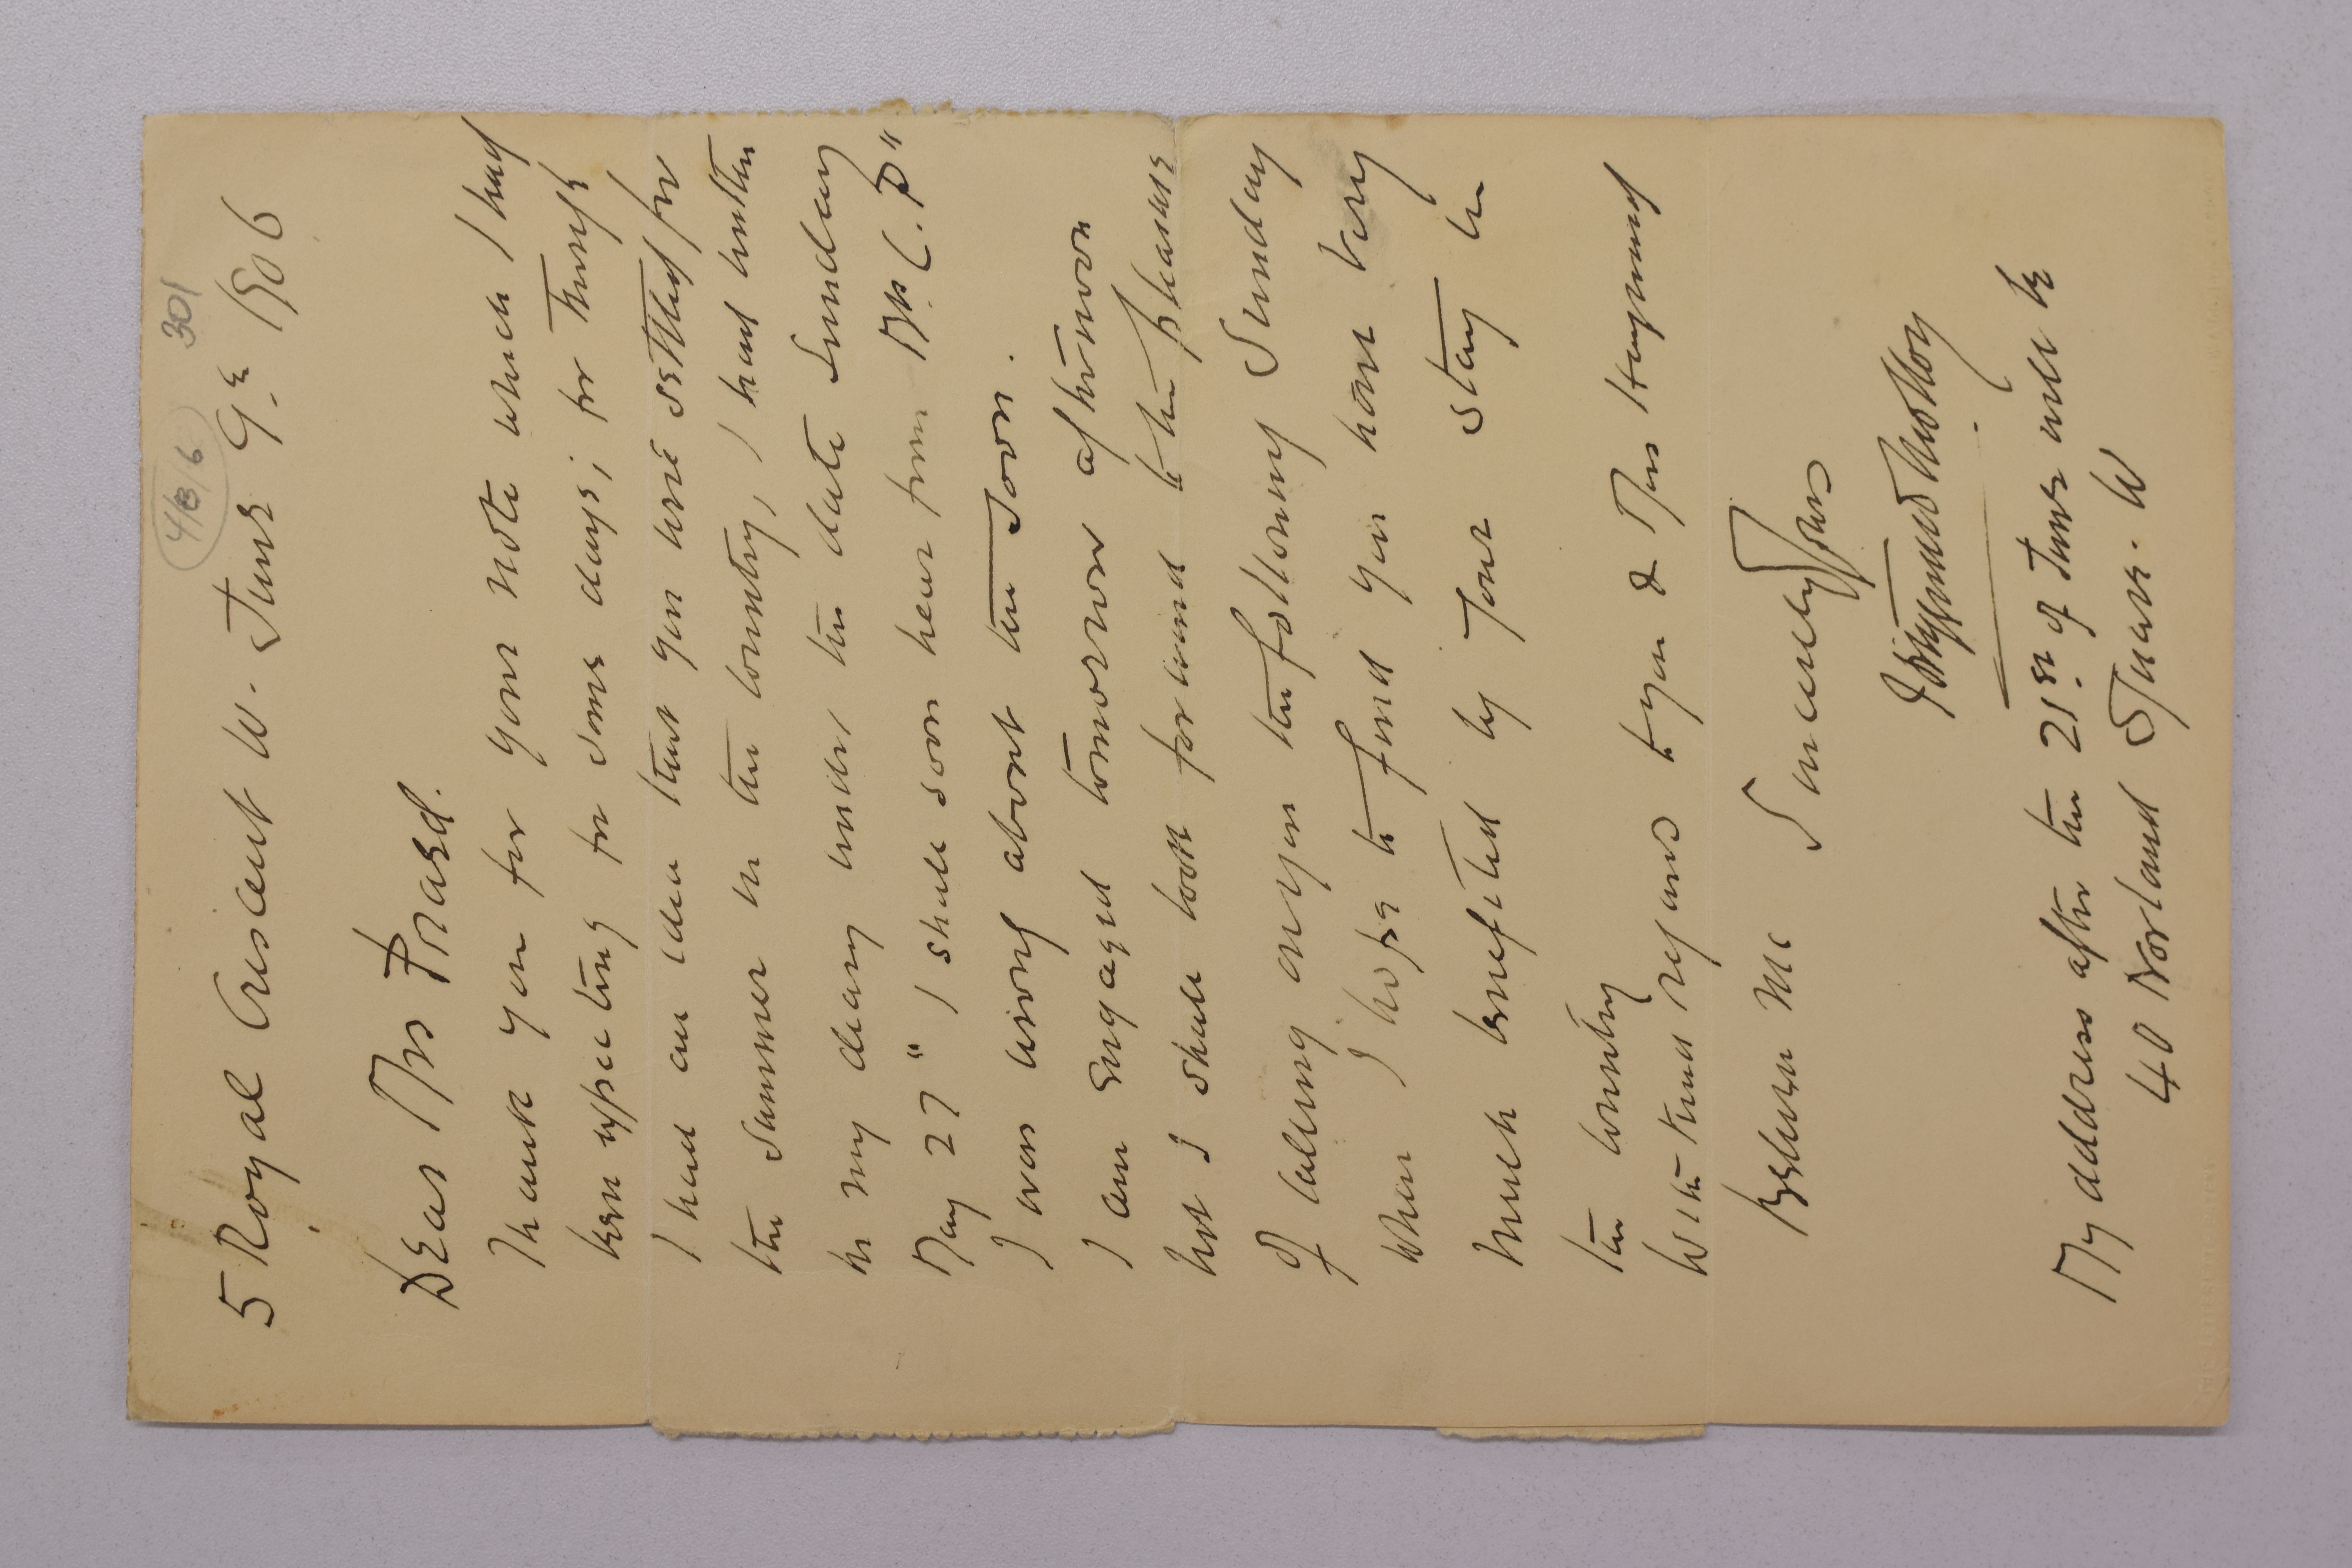 4/8/6 301
5 Royal Crescent W. June 9th 1906
Dear Mrs Praed.
Thank you for your note which I had
been expecting for some days; for though
I had an idea that you were settled for
the summer in the country, I had written
in my diary under the date Sunday
May 27 "I shall soon hear from Mrs C. P"
I was wrong about the soon.
I am engaged tomorrow afternoon
but I shall look forward to the pleasure
of calling on you the following Sunday
when I hope to find you have very
much benefited by your stay in
the country
With kind regards to you & Miss
Believe me Sincerely Yours
My address after the 21st of June will be
40 Norland Square. W